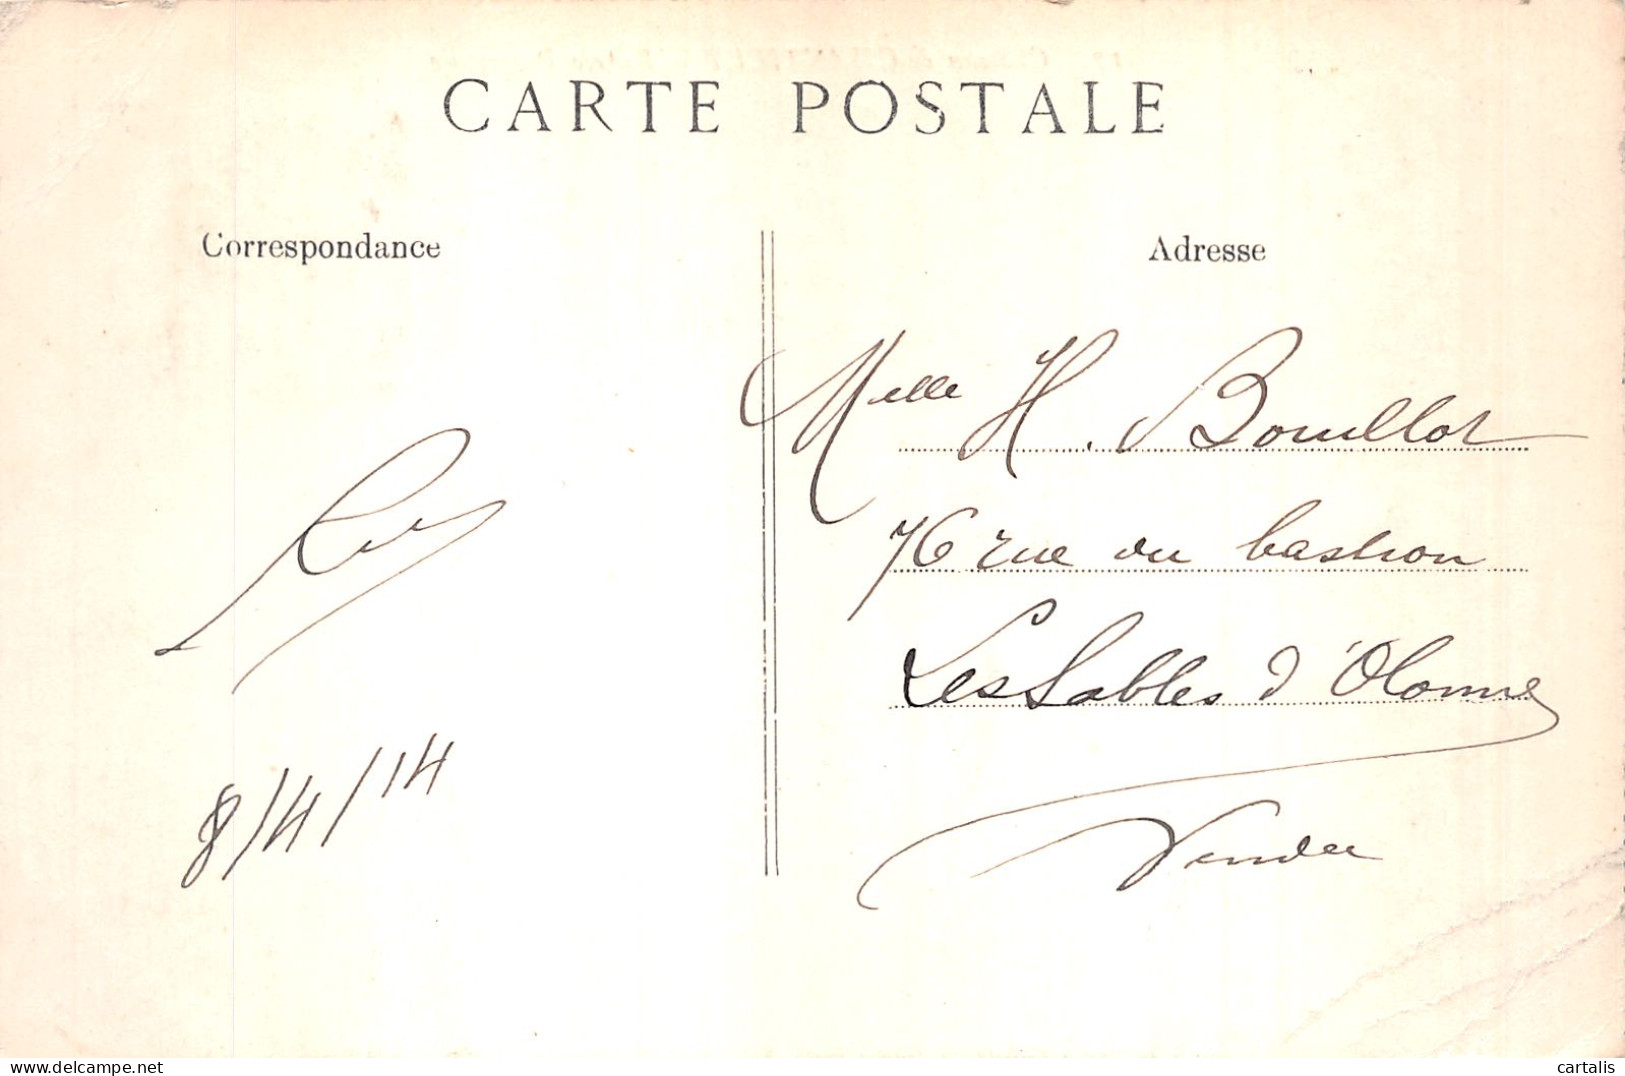 CARTE POSTALE
Correspondance
Adresse
Melle H. Bouillot
76 rue du bastion
Les Sables d'Olonne
Vendée
8/4/14
cartalis